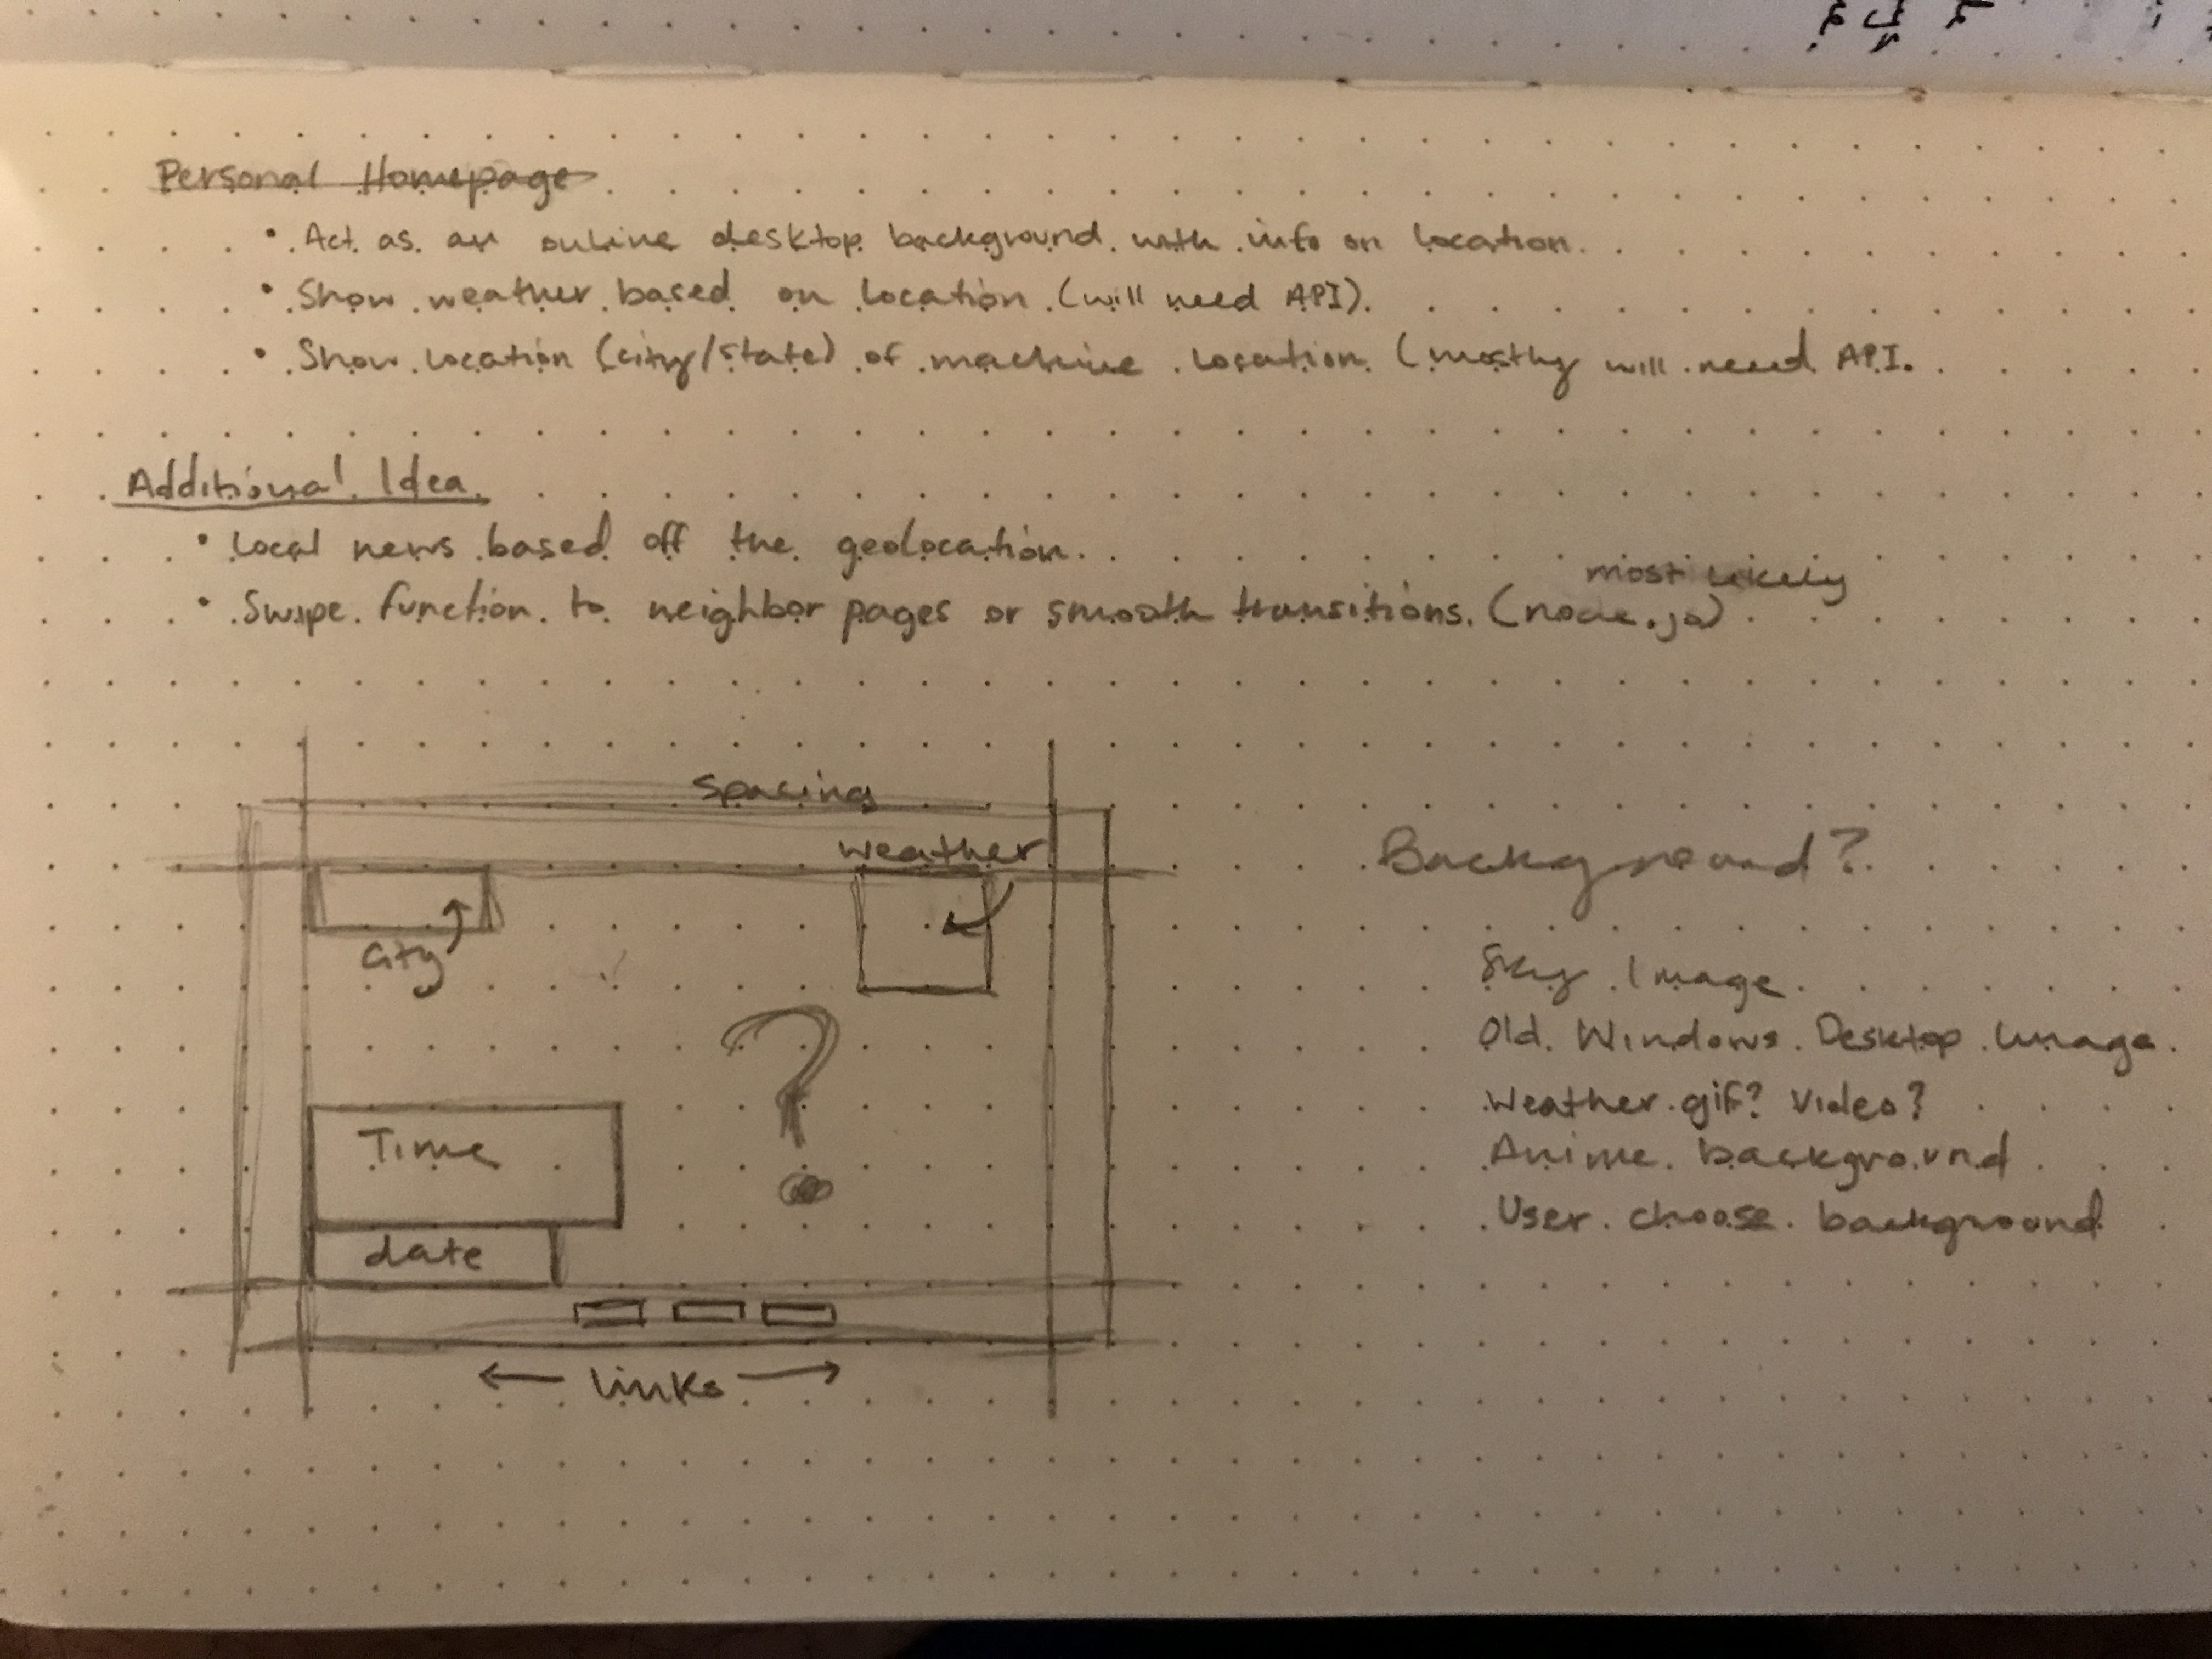 Personal Homepage
• Act as an online desktop background with info on location.
• Show weather based on location (will need API).
• Show location (city/state) of machine location. (mostly will need API.
Additional Idea
• Local news based off the geolocation.
most likely
• Swipe function to neighbor pages or smooth transitions. (node.js)
Spacing
weather
City
Time
?
date
← links →
Background?
Sky Image
Old Windows Desktop Image
Weather gif? video?
Anime background
User choose background